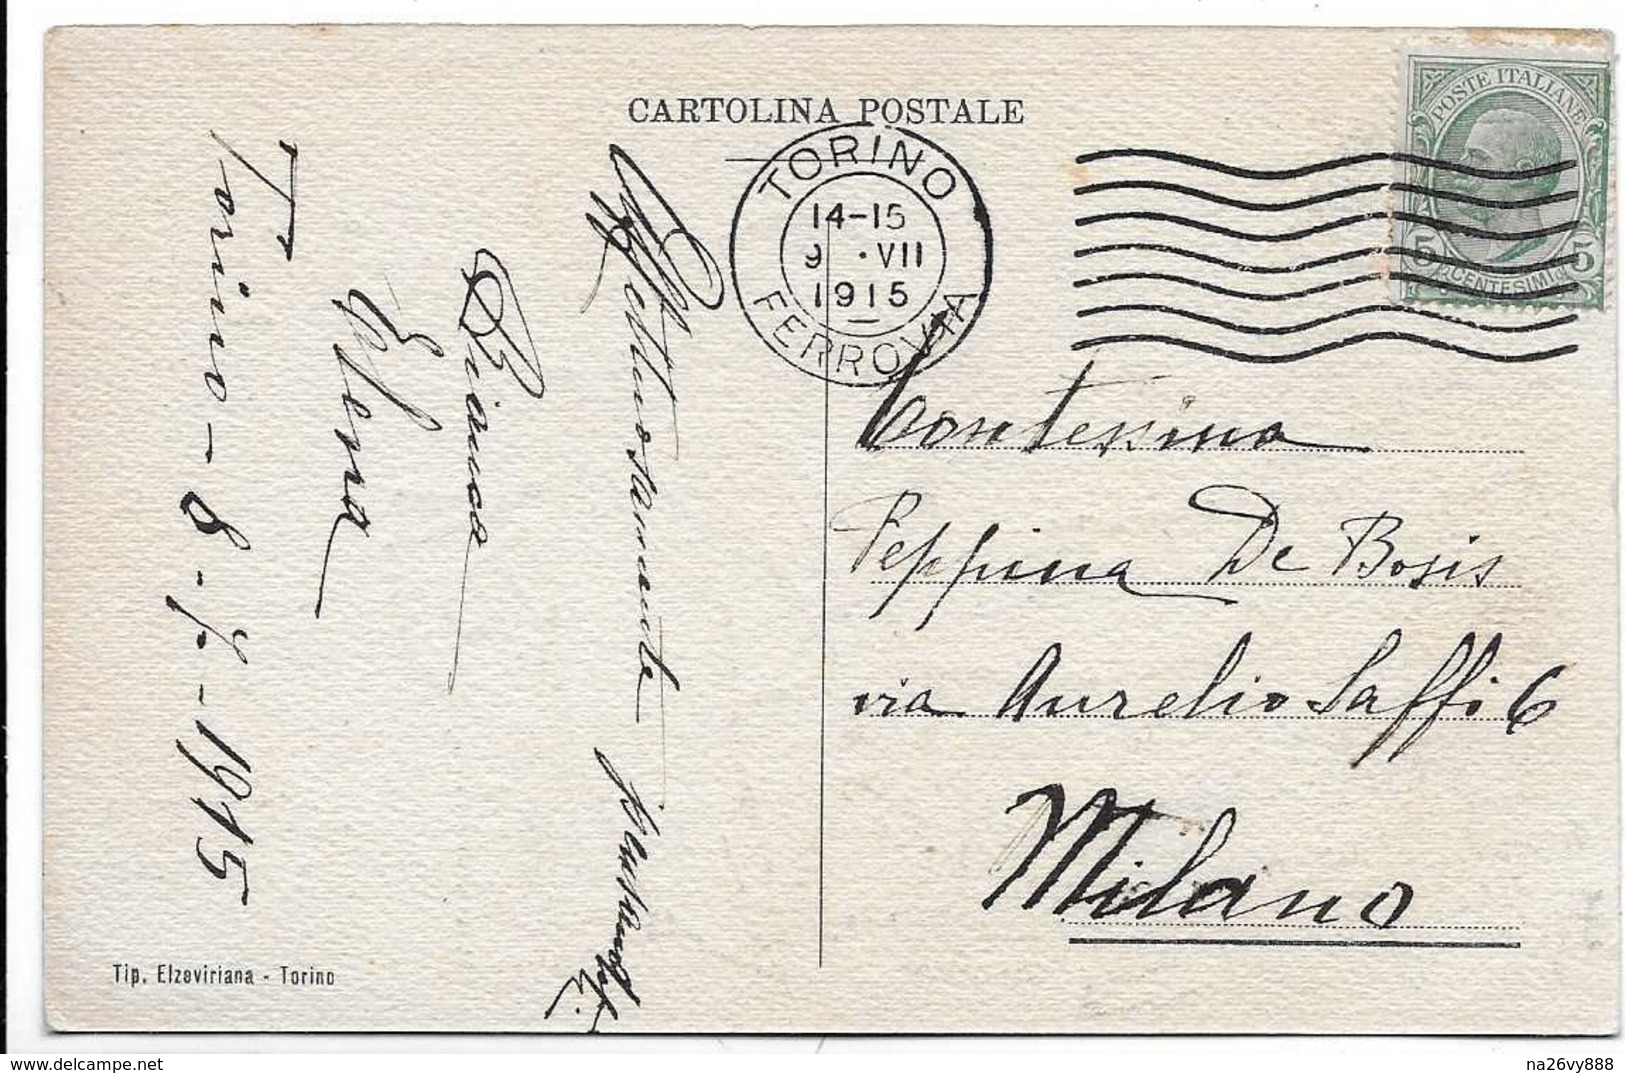 CARTOLINA POSTALE
POSTE ITALIANE
5 CENTESIMI 5
TORINO
14-15
9 · VII
1915
FERROVIA
Affettuosamente
Bianca
Elena
Torino - 8 - 7 - 1915
Contessina
Peppina De Bosis
via Aurelio Saffi 6
Milano
Tip. Elzeviriana - Torino
na26vy888